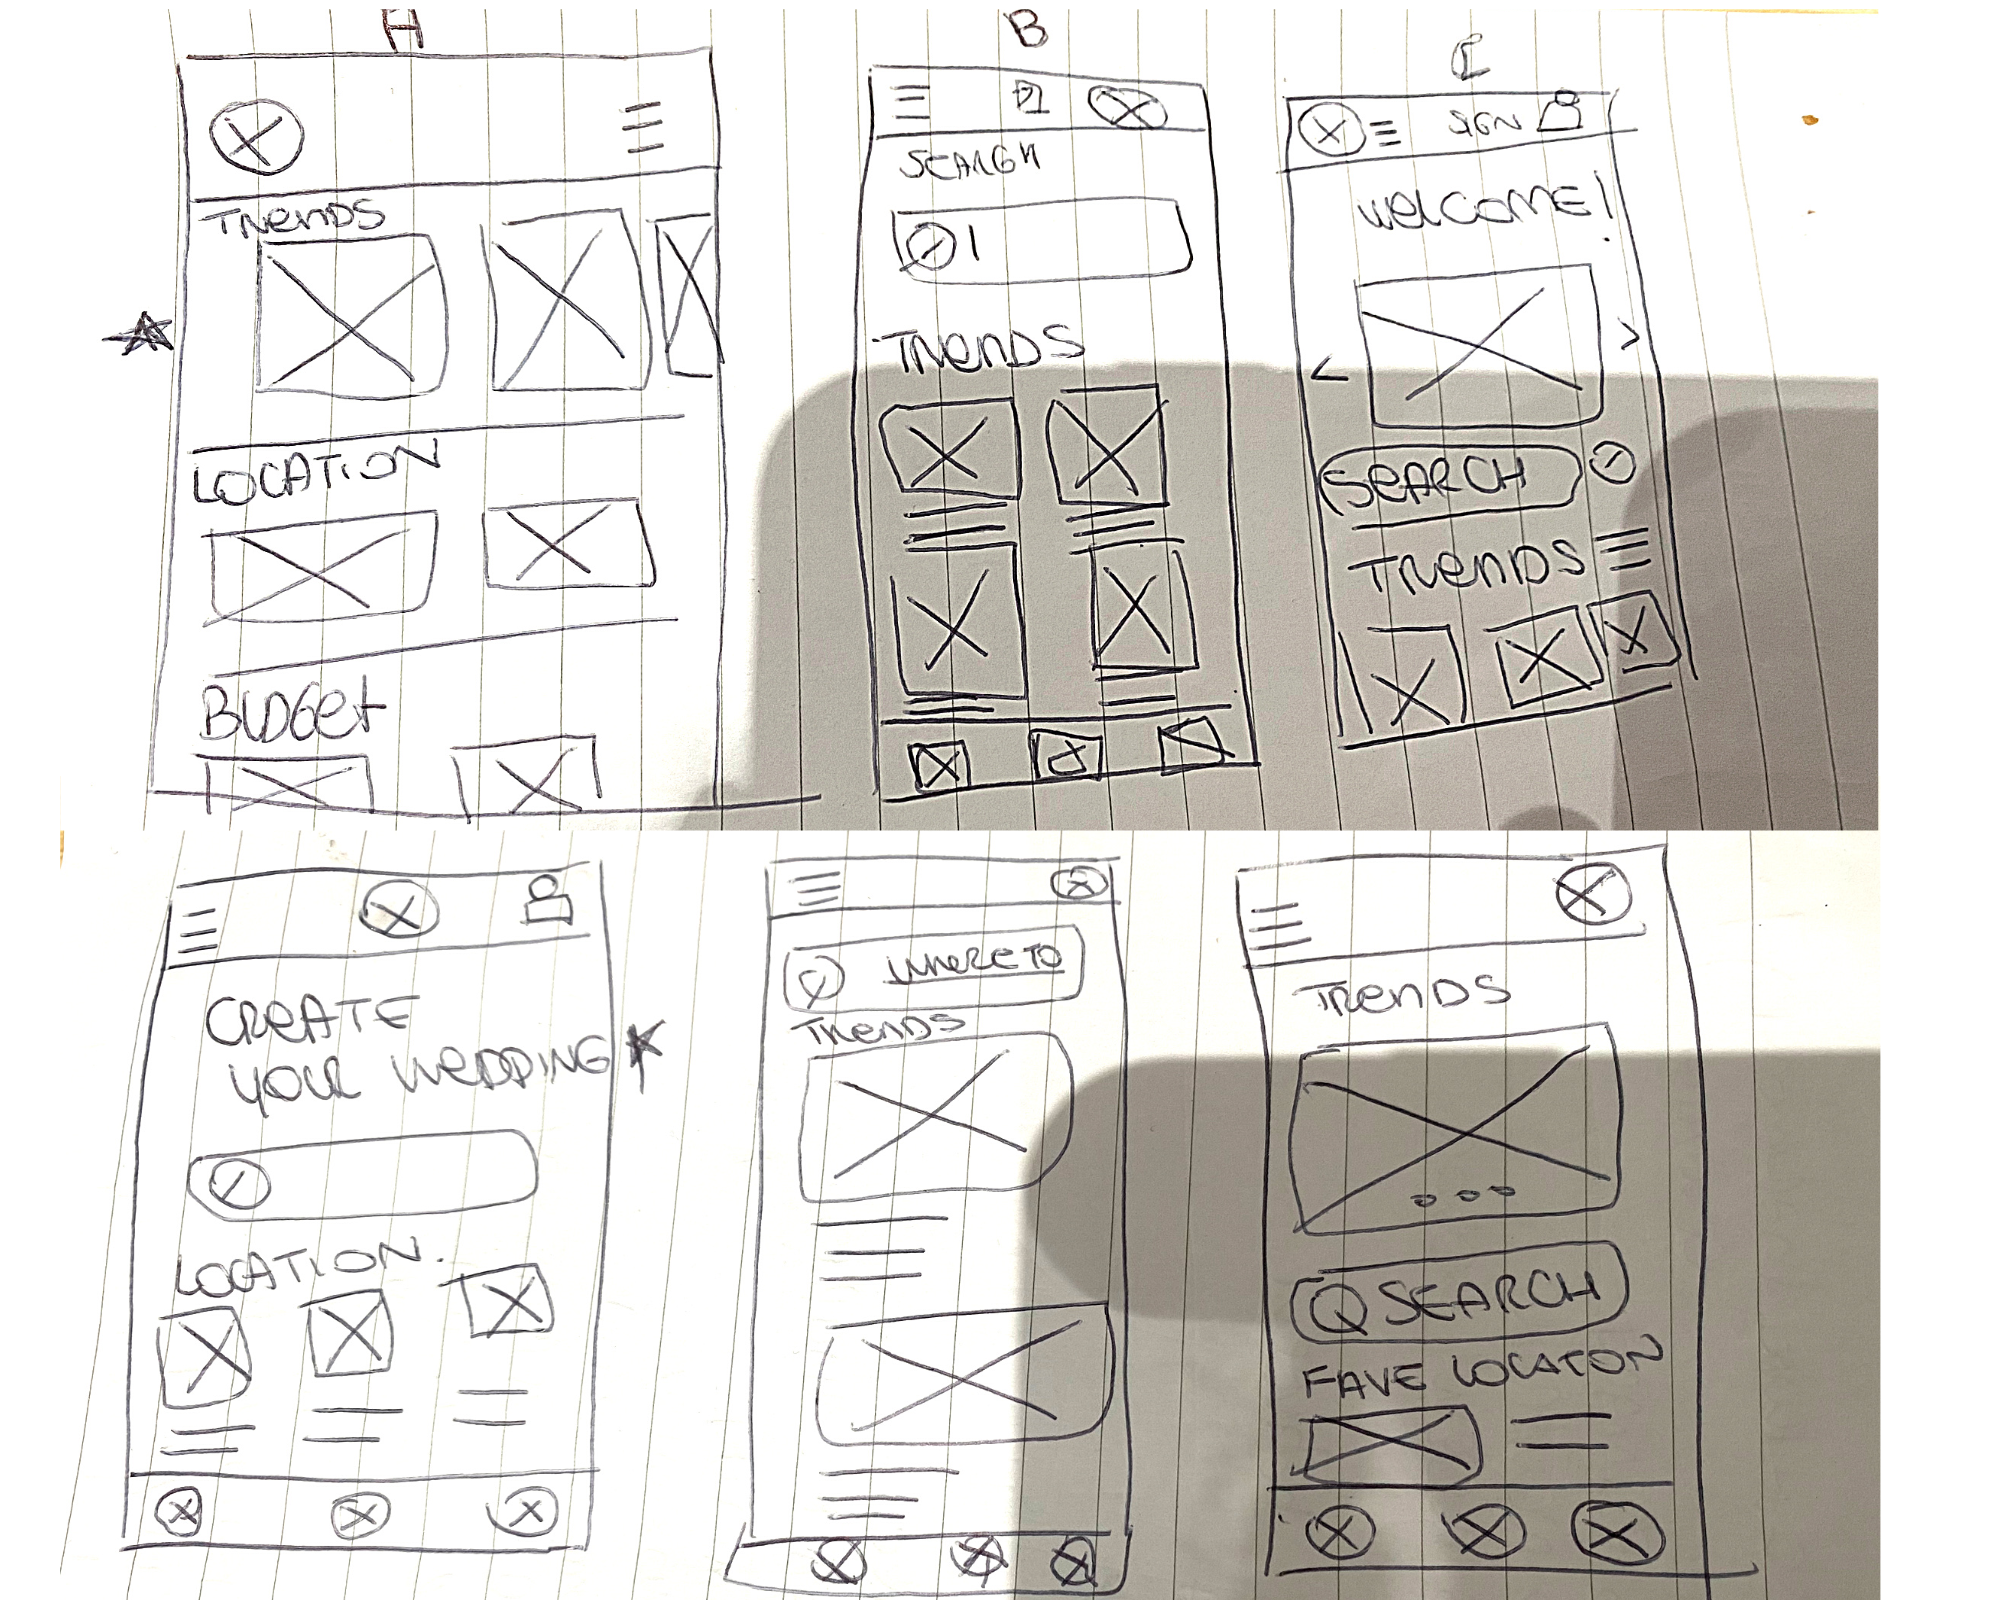 A
TRENDS
LOCATION
BUDGET
B
SEARCH
TRENDS
C
SIGN
WELCOME!
SEARCH
TRENDS
CREATE
YOUR WEDDING
LOCATION.
WHERE TO
TRENDS
TRENDS
SEARCH
FAVE LOCATON